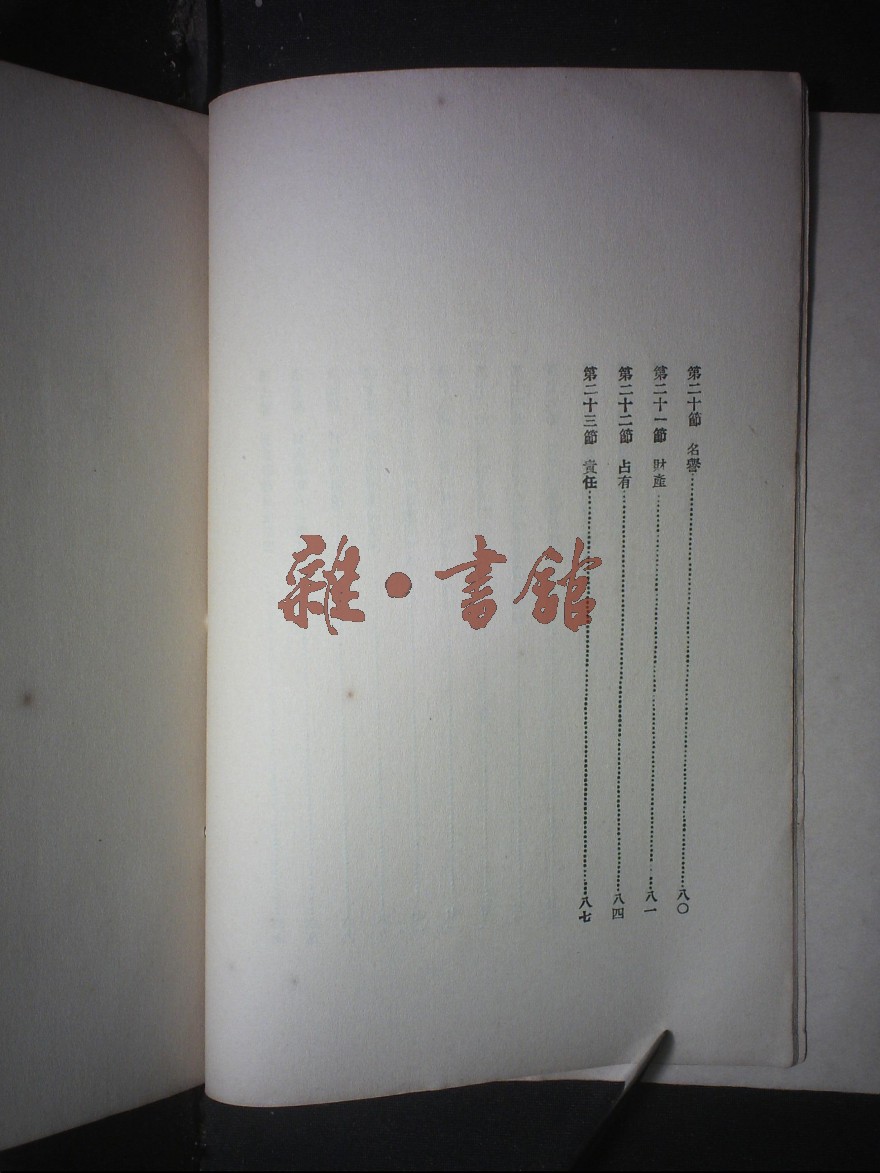 第二十節　名譽……八〇
第二十一節　財產……八一
第二十二節　占有……八四
第二十三節　責任……八七
雜·書館